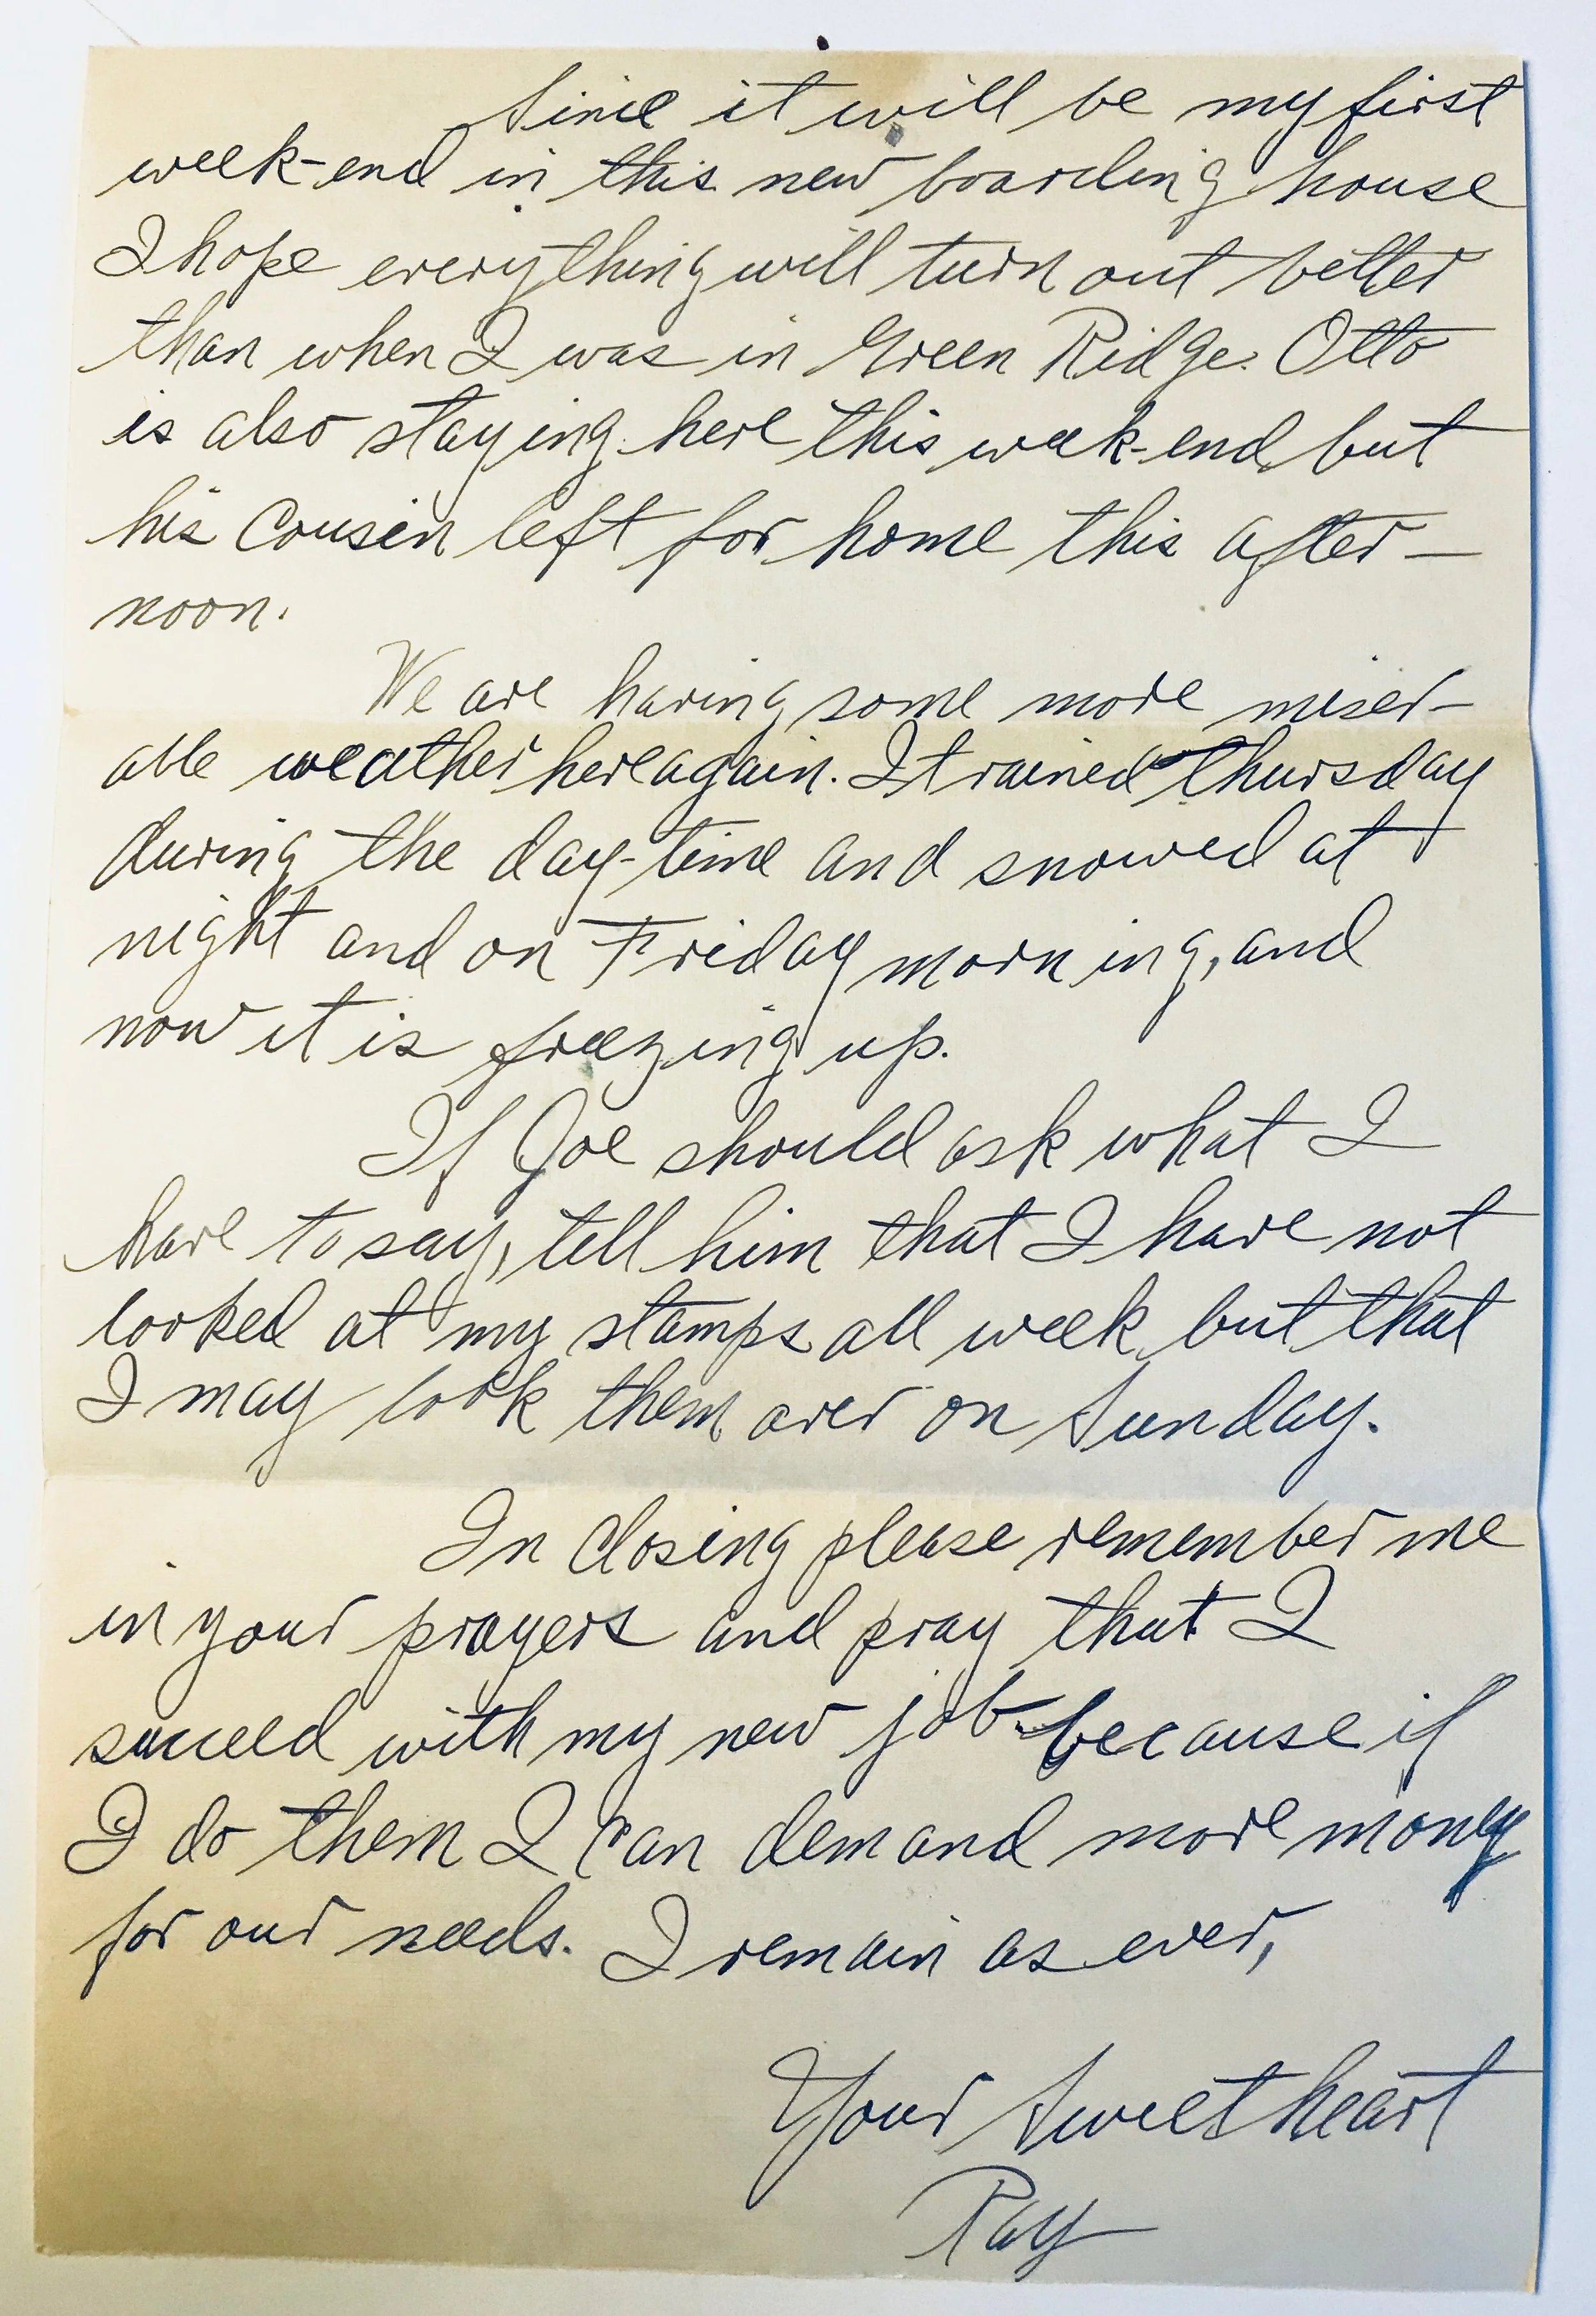 Since it will be my first
week-end in this new boarding house
I hope everything will turn out better
than when I was in Green Ridge. Otto
is also staying here this week-end but
his Cousin left for home this after-
noon.
We are having some more miser-
able weather here again. It rained Thursday
during the day-time and snowed at
night and on Friday morning, and
now it is freezing up.
If Joe should ask what I
have to say, tell him that I have not
looked at my stamps all week but that
I may look them over on Sunday.
In closing please remember me
in your prayers and pray that I
succeed with my new job because if
I do them I can demand more money
for our needs. I remain as ever,
Your Sweetheart
Ray